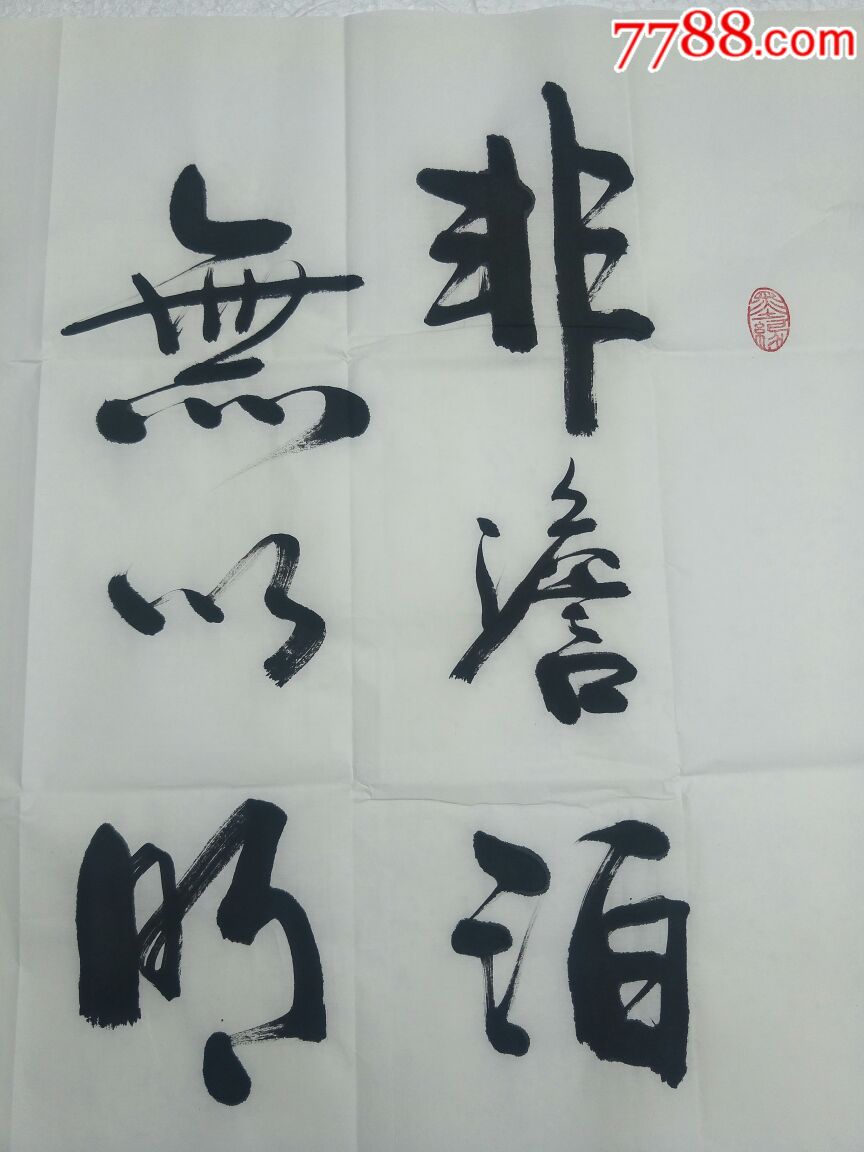 7788.com
非澹泊
無以明